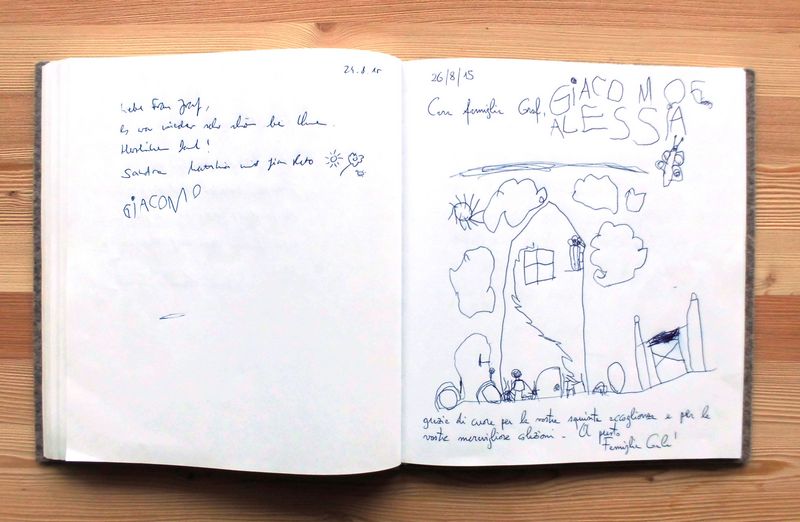 24.8.15
Liebe Frau Graf,
Es war wieder sehr schön bei Ihnen.
Herzlichen Dank!
Sandra und
GIACOMO
26/8/15
GIACOMO E
Cara famiglia Graf,
ALESSIA
grazie di cuore per la vostra squisita accoglienza e per le
vostre meravigliose colazioni. A presto
Famiglia